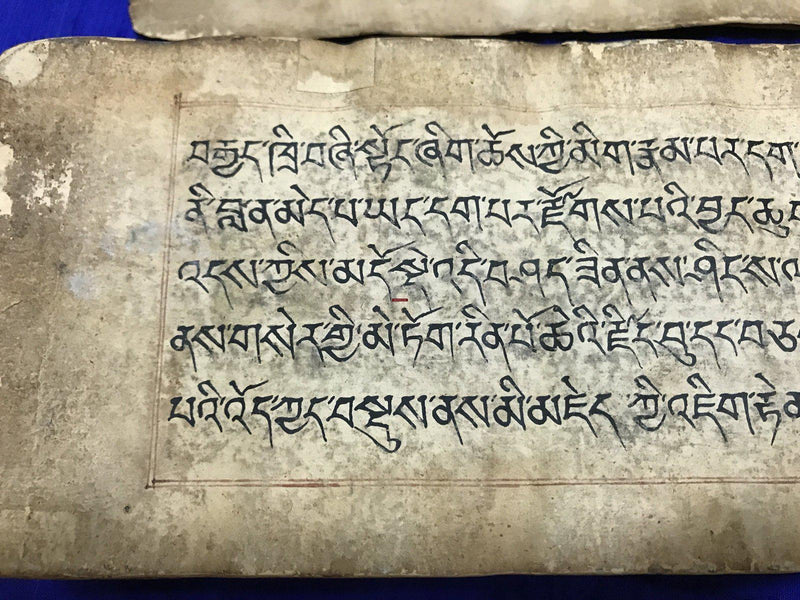 བརྒྱད་ཁྲི་བཞི་སྟོང་ཞིག་ཆོས་ཀྱི་མིག་རྣམ་པར་དག་
ནི་སླན་མེད་པ་ཡང་དག་པར་རྫོགས་པའི་བྱང་ཆུབ་
འདས་ཀྱིས་མདོ་སྡེ་འདི་བཤད་ཟིན་ནས་ཤིང་ས་ལ
ནས་གསེར་གྱི་མེ་ཏོག་རིན་པོ་ཆེའི་རྡེང་བུ་དང་བཅ
པའི་འོད་ཀྱང་བསྡུས་ནས་མི་མཇེད་ཀྱི་འཇིག་རྟེན